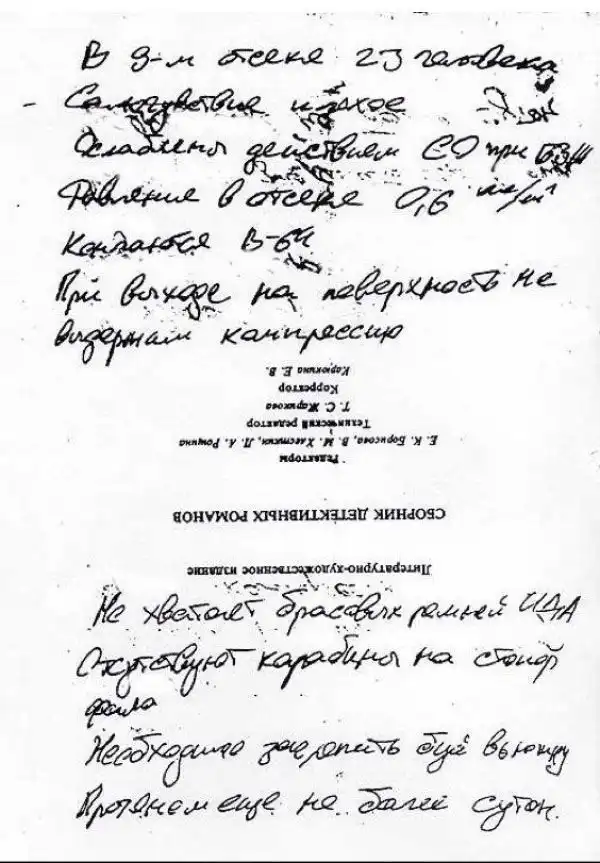 В 9-м отсеке 23 человека
Самочувствие плохое
Ослаблены действием СО при БЗЖ
Давление в отсеке 0,6 кг/м²
Кончаются В-64
При выходе на поверхность не
выдержим компрессию
Карюкина Е. В.
Корректор
Т. С. Жарикова
Технический редактор
Е. К. Борисова, В. М. Хлесткин, Л. А. Рощина
Редакторы
СБОРНИК ДЕТЕКТИВНЫХ РОМАНОВ
Литературно-художественное издание
Не хватает брасовых ремней ИДА
Отсутствуют карабины на стопор
фала
Необходимо закрепить буй вьюшку
Протянем еще не более суток.